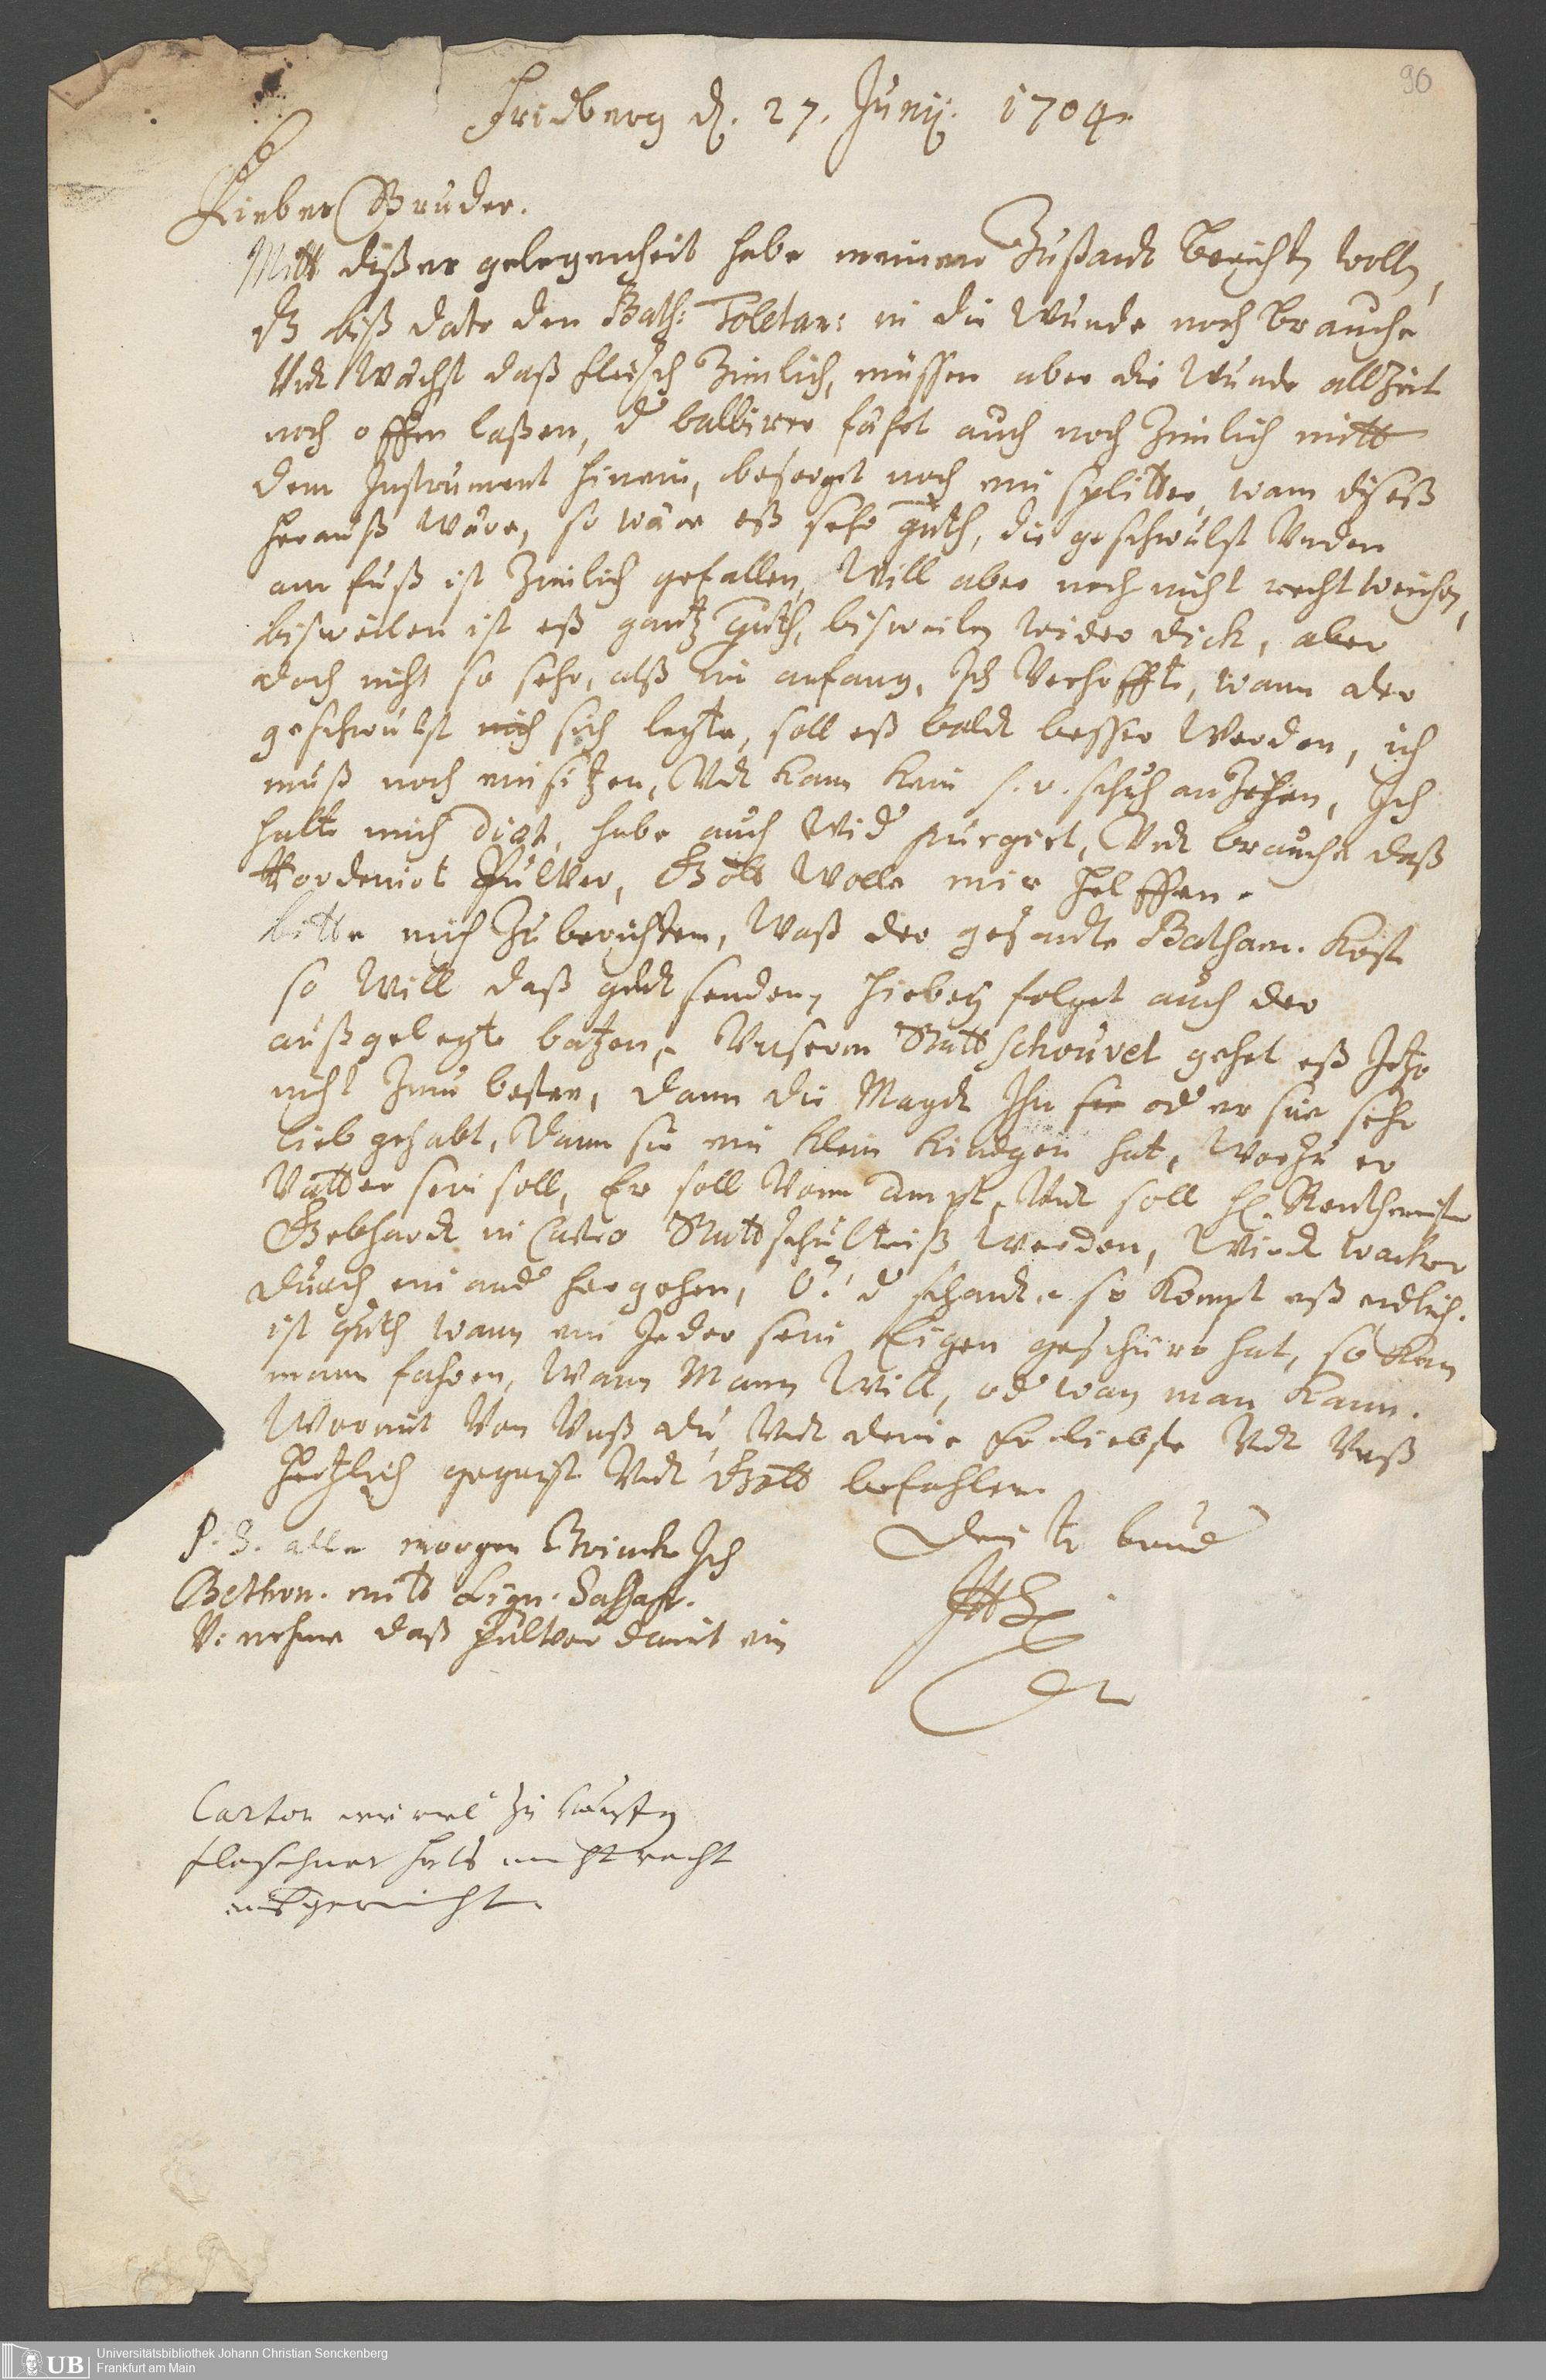 96
Fridberg d. 27. Junij. 1704.
Lieber Bruder.
Mitt dißer gelegenheit habe meinen Zustandt berichten wollen,
dß biß dato den Bals: Toletan: in die Wunde noch brauche
Undt Wächst daß fleisch Zimlich, müssen aber die Wunde allzeit
noch offen laßen, d balbirer fährt auch noch Zimlich mitt
dem Instrument hinein, besorget noch ein splitter, wann dißeß
herauß wäre, so wäre eß sehr guth, die geschwulst Unden
am fuß ist Zimlich gefallen, Will aber noch nicht recht weichen,
bisweilen ist eß gantz guth, bisweilen wider dick, aber
doch nicht so sehr, alß im anfang, Ich Verhoffte, wann der
geschwulst nich sich legte, soll eß baldt besser Werden, ich
muß noch einsitzen, Undt kann kein s. v. schuh anziehen, Ich
halte mich diät, habe auch Wid purgirt, Undt brauche daß
Pulver, Gott Wolle mir helffen.
bitte mich Zu berichten, Waß der gesandte Balsam. kost
so Will daß geldt senden, hiebey folget auch der
außgelegte batzen, Unserm Statt gehet eß Jetzo
nicht Zum besten, dann die Magdt Ihn sie od er sie sehr
lieb gehabt, dann sie ein klein kindgen hat, Worzu er
Vatter sein soll, Er soll Vom ampt, Undt soll H. Rentmeister
Gebhardt in Statt schultheiß Werden, Wirdt wacker
durch ein and hergehen, O! d schandt. so kompt eß endlich.
ist guth wann ein Jeder sein Eigen geschirr hat, so kan
mann fahren, Wann Mann Will, od wan man kann.
Wormit Von Unß du Undt deine Eheliebste Undt Unß
hertzlich gegrüst Undt Gott befohlen
P. S. alle morgen Trincke Ich
Bethon. mitt Lign. Sassafr.
V. nehme daß pulver damit ein
Dein tr brud
JHS
Dr